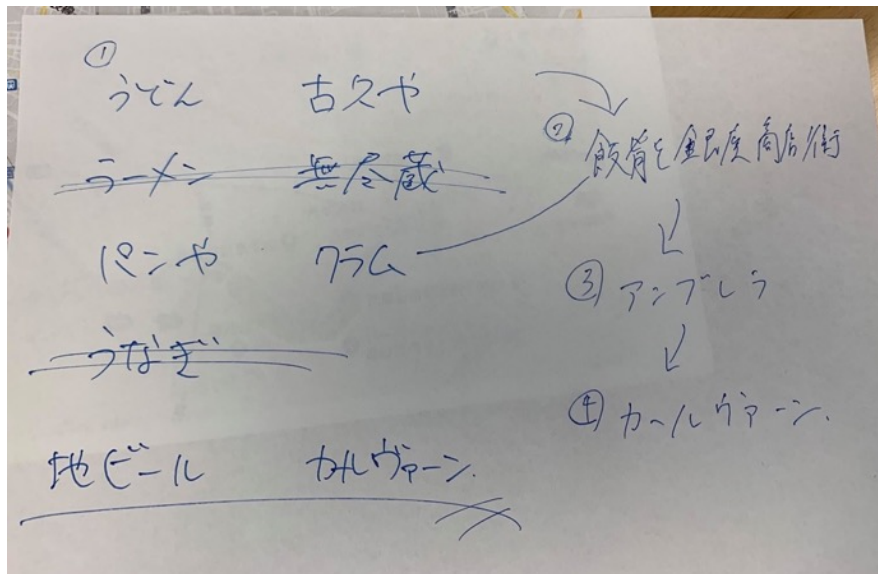 ①
うどん 古久や
ラーメン 無尽蔵
パンや クラム
うなぎ
地ビール カールヴァーン.
② 飯能 銀座商店街
③ アンブレラ
④ カールヴァーン.